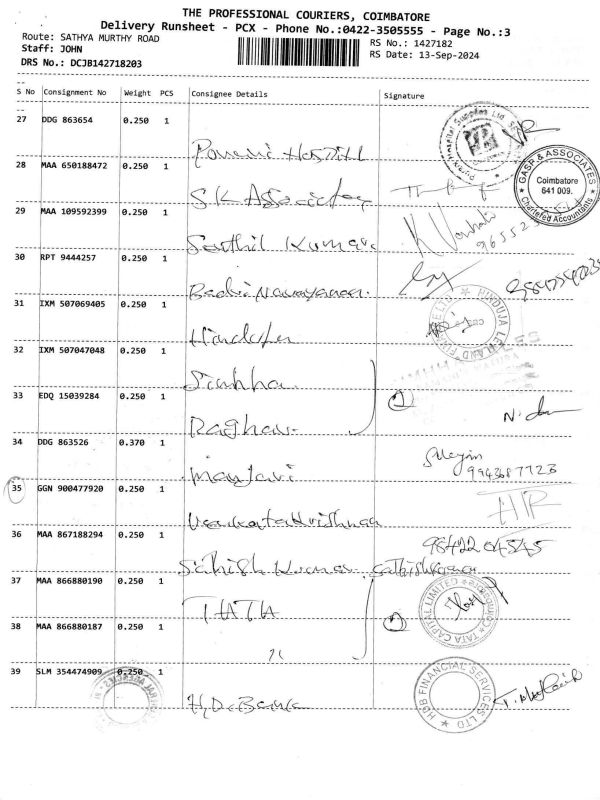 THE PROFESSIONAL COURIERS, COIMBATORE
Delivery Runsheet - PCX - Phone No.:0422-3505555 - Page No.:3
Route: SATHYA MURTHY ROAD
Staff: JOHN
DRS No.: DCJB142718203
RS No.: 1427182
RS Date: 13-Sep-2024
S No Consignment No Weight PCS Consignee Details Signature
27 DDG 863654 0.250 1
28 MAA 650188472 0.250 1
S.K Associates
GASP & ASSOCIATES
Coimbatore
641 009.
Chartered Accountants
29 MAA 109592399 0.250 1
Senthil Kumar
30 RPT 9444257 0.250 1
Badri Narayanan
31 IXM 507069405 0.250 1
HINDUJA LEYLAND FINANCE LTD
32 IXM 507047048 0.250 1
33 EDQ 15039284 0.250 1
Raghav
2
34 DDG 863526 0.370 1
9943687723
35 GGN 900477920 0.250 1
Venkatakrishnan
36 MAA 867188294 0.250 1
Sathish Kumar
98422 04545
37 MAA 866880190 0.250 1
TATA
TATA CAPITAL LIMITED
38 MAA 866880187 0.250 1
"
2
39 SLM 354474909 0.250 1
HDB FINANCIAL SERVICES LTD